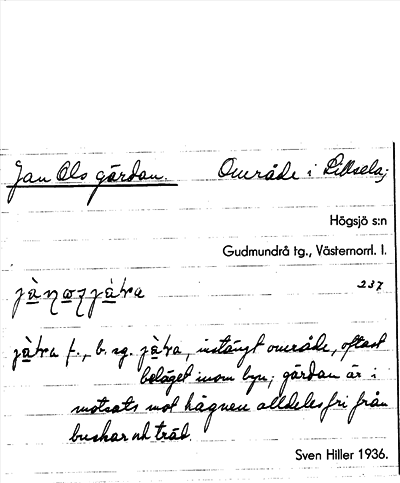 Jan Ols gärdan. Område i Lillsela;
Högsjö s:n
Gudmundrå tg., Västernorrl. l.
237
f., b. sg. instängt område, oftast
beläget inom byn; gärdan är i
motsats mot hägnen alldeles fri från
buskar och träd.
Sven Hiller 1936.